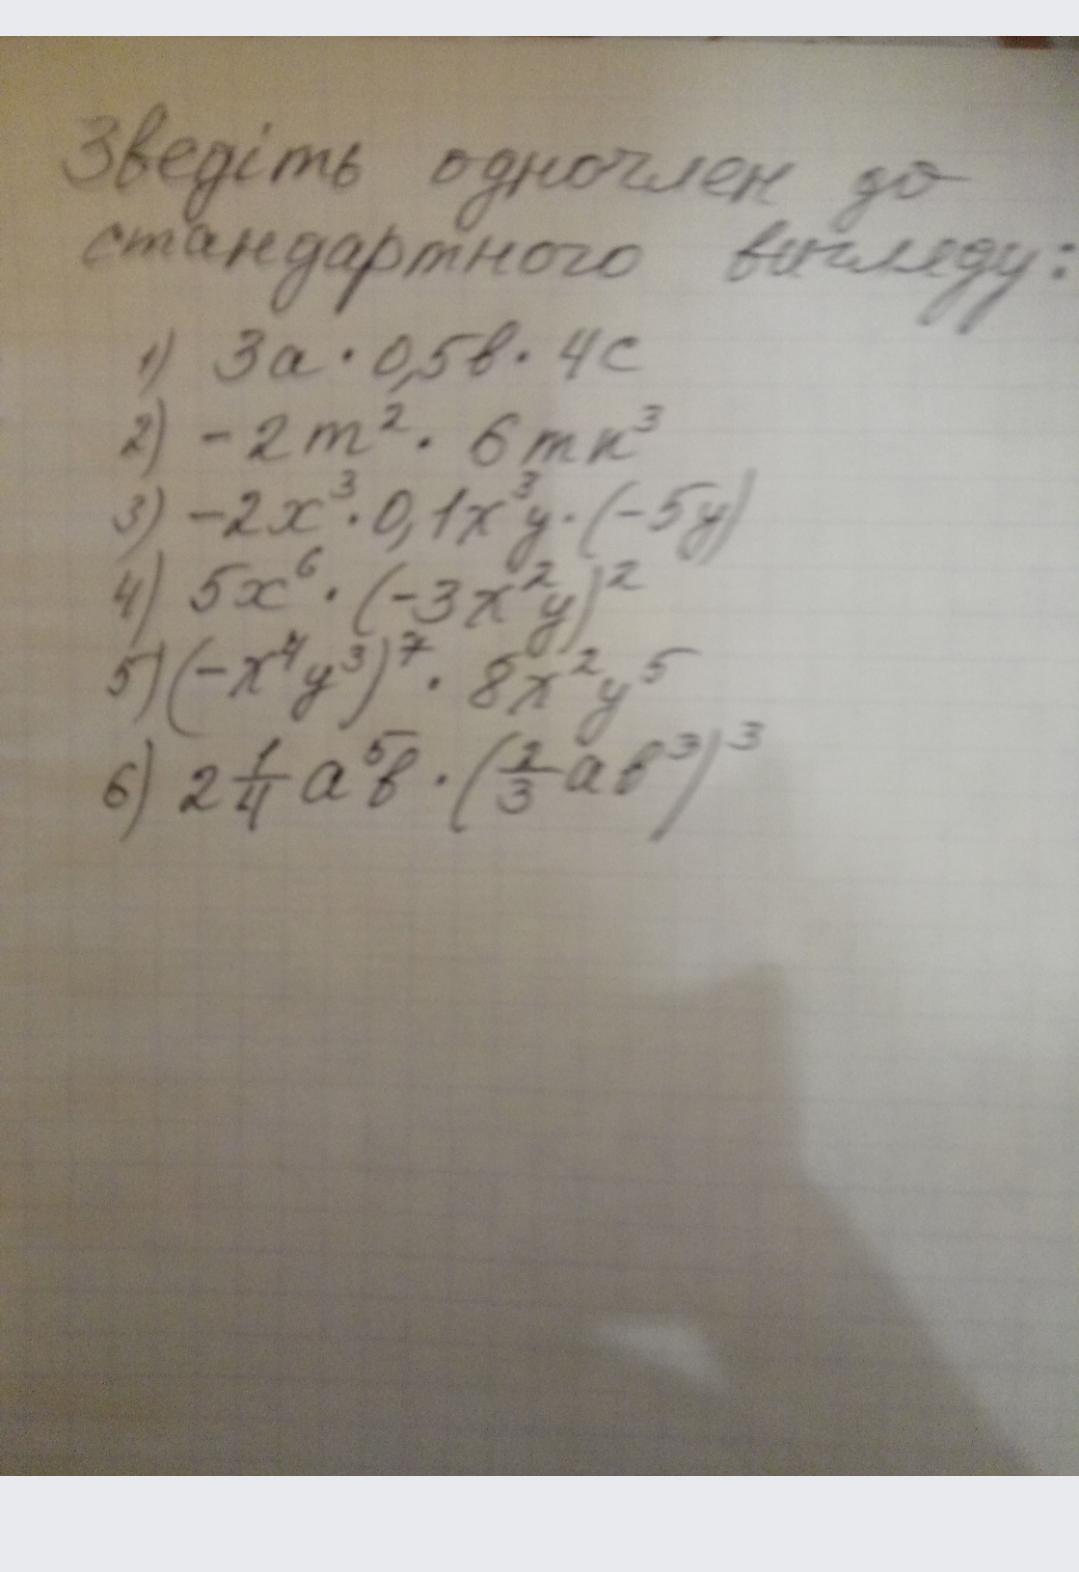 Зведіть одночлен до
стандартного вигляду:
1) 3a · 0,5b · 4c
2) -2m² · 6mn³
3) -2x³ · 0,1x³y · (-5y)
4) 5x⁶ · (-3x²y)²
5) (-x⁴y³)⁷ · 8x²y⁵
6) 2 1/4 a⁵b · (2/3 ab³)³